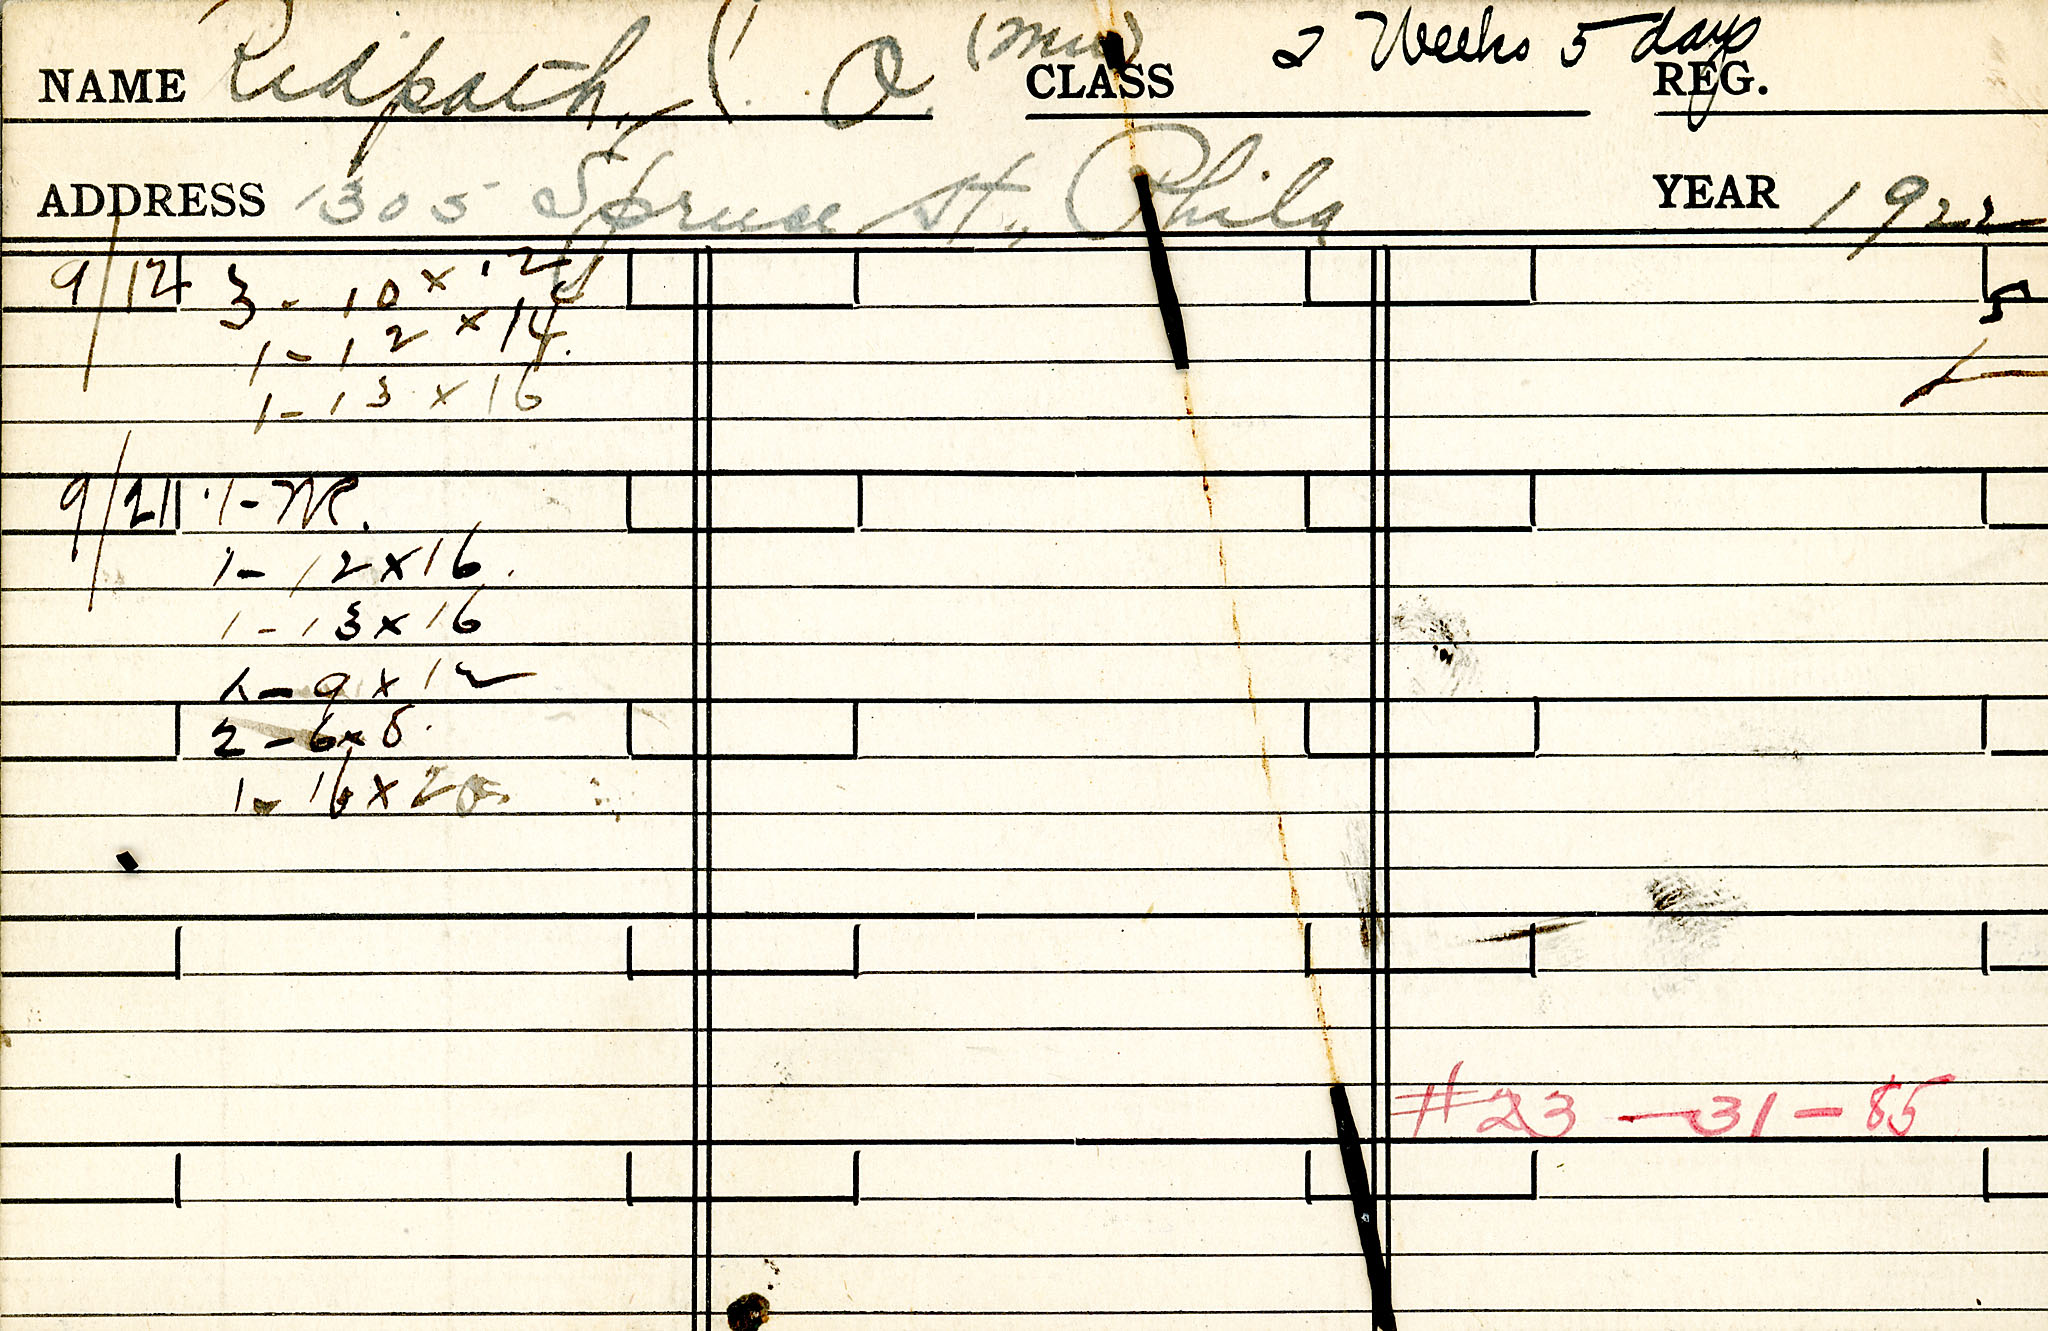 NAME Ridpath, ( . O. CLASS 2 Weeks 5 days REG.
ADDRESS 1305 Spruce St., Phila YEAR 1922
9/12 3 - 10 x 12
1 - 12 x 14.
1 - 13 x 16
9/21 1 - W.
1 - 12 x 16.
1 - 13 x 16
1 - 9 x 12
2 - 6 x 8.
1 - 16 x 20.
5
#23 - 31 - 85